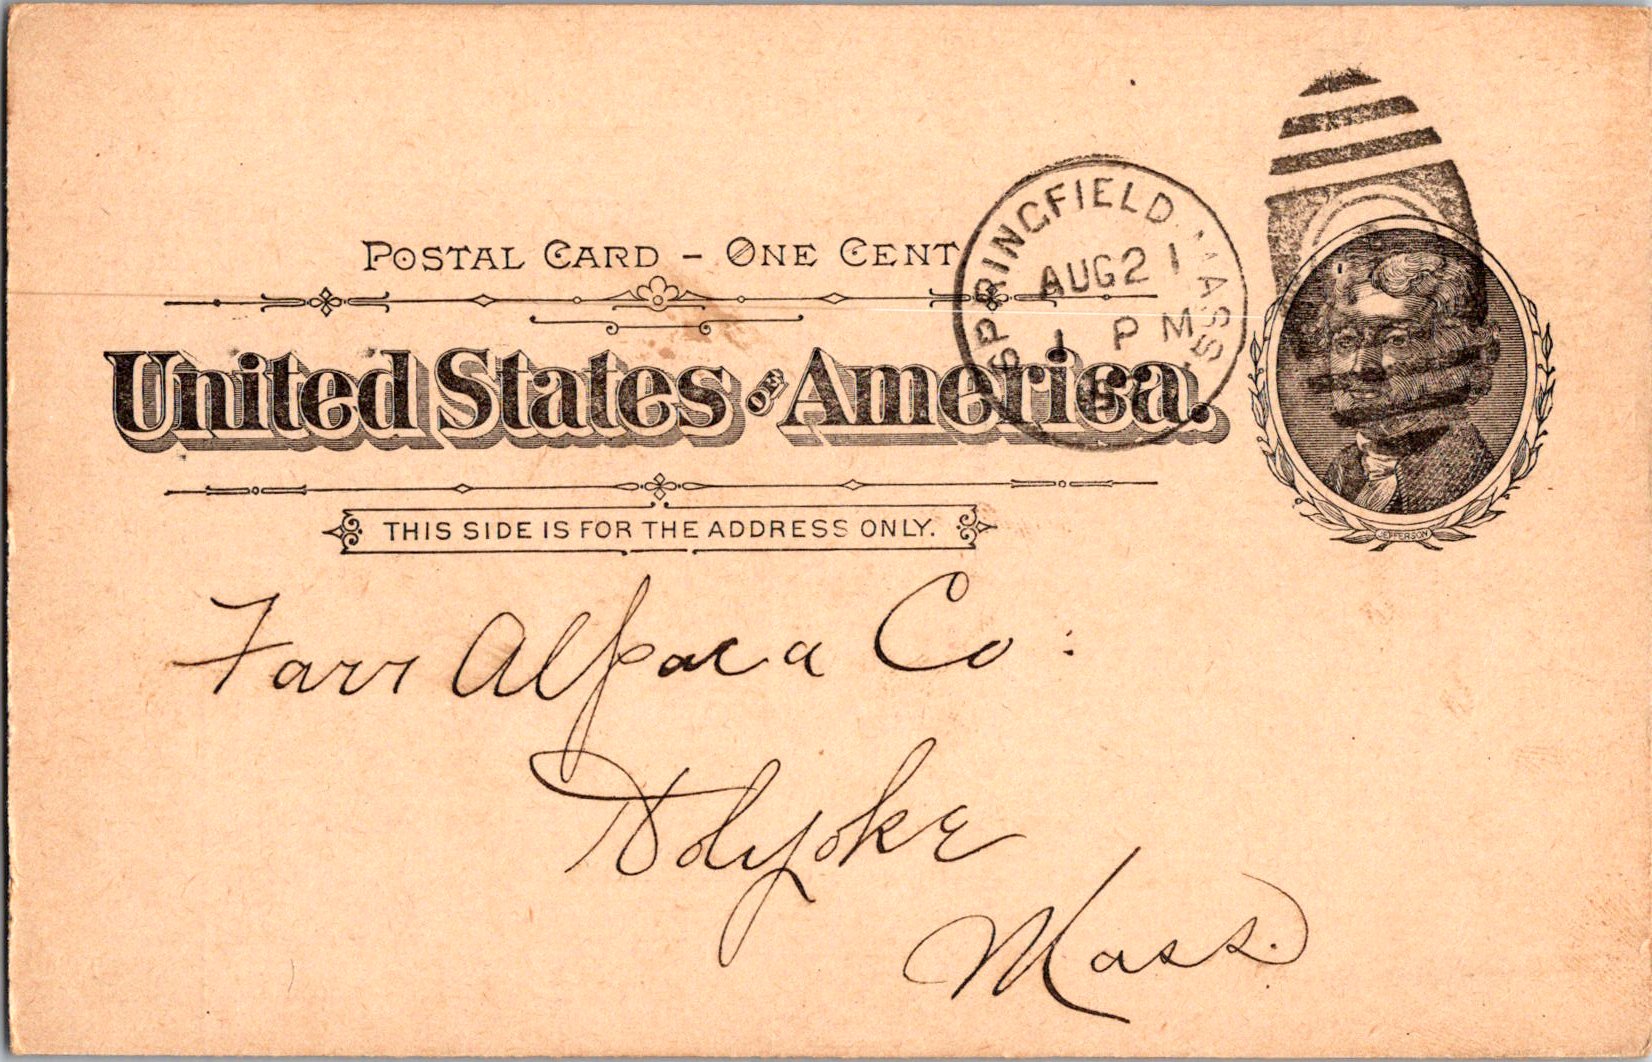 POSTAL CARD – ONE CENT
United States OF America.
THIS SIDE IS FOR THE ADDRESS ONLY.
SPRINGFIELD. MASS.
AUG 21
1 PM
JEFFERSON
Farr Alpaca Co:
Holyoke
Mass.